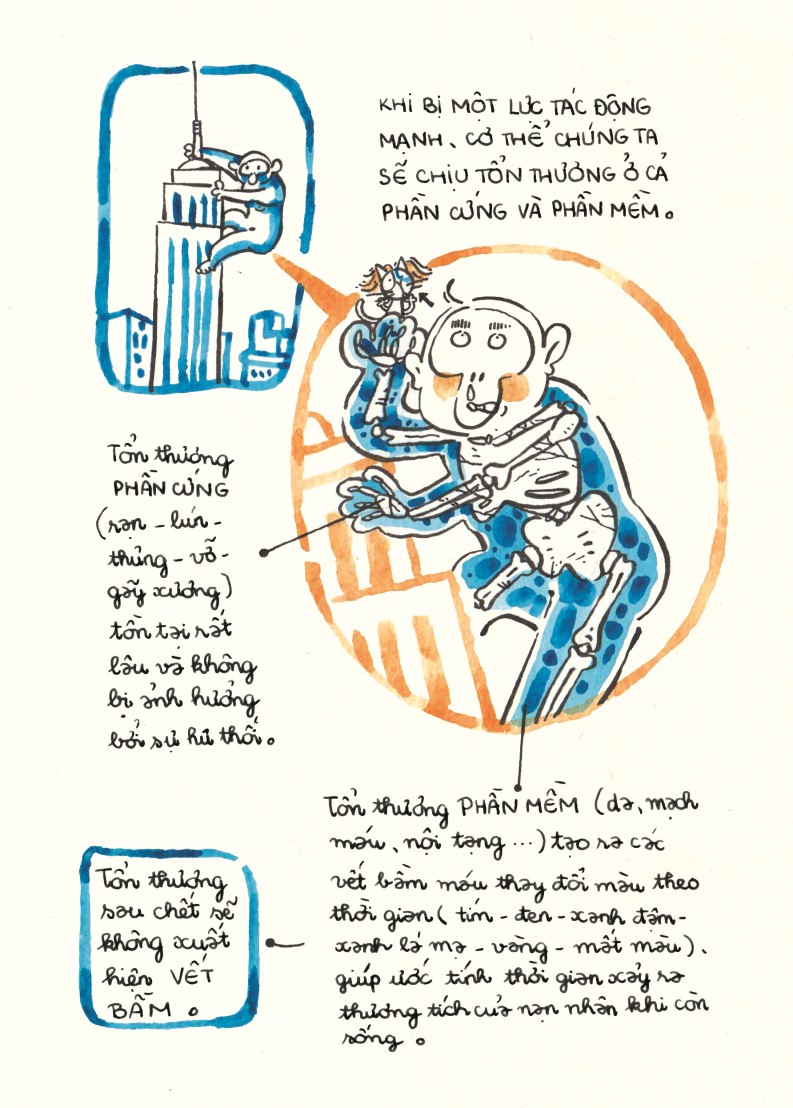 KHI BỊ MỘT LỰC TÁC ĐỘNG
MẠNH, CƠ THỂ CHÚNG TA
SẼ CHỊU TỔN THƯƠNG Ở CẢ
PHẦN CỨNG VÀ PHẦN MỀM.
Tổn thương
PHẦN CỨNG
(rạn - lún -
thủng - vỡ -
gãy xương)
tồn tại rất
lâu và không
bị ảnh hưởng
bởi sự hư thối.
Tổn thương PHẦN MỀM (da, mạch
máu, nội tạng ...) tạo ra các
vết bầm máu thay đổi màu theo
thời gian (tím - đen - xanh đậm -
xanh lá mạ - vàng - mất màu),
giúp ước tính thời gian xảy ra
thương tích của nạn nhân khi còn
sống.
Tổn thương
sau chết sẽ
không xuất
hiện VẾT
BẦM.